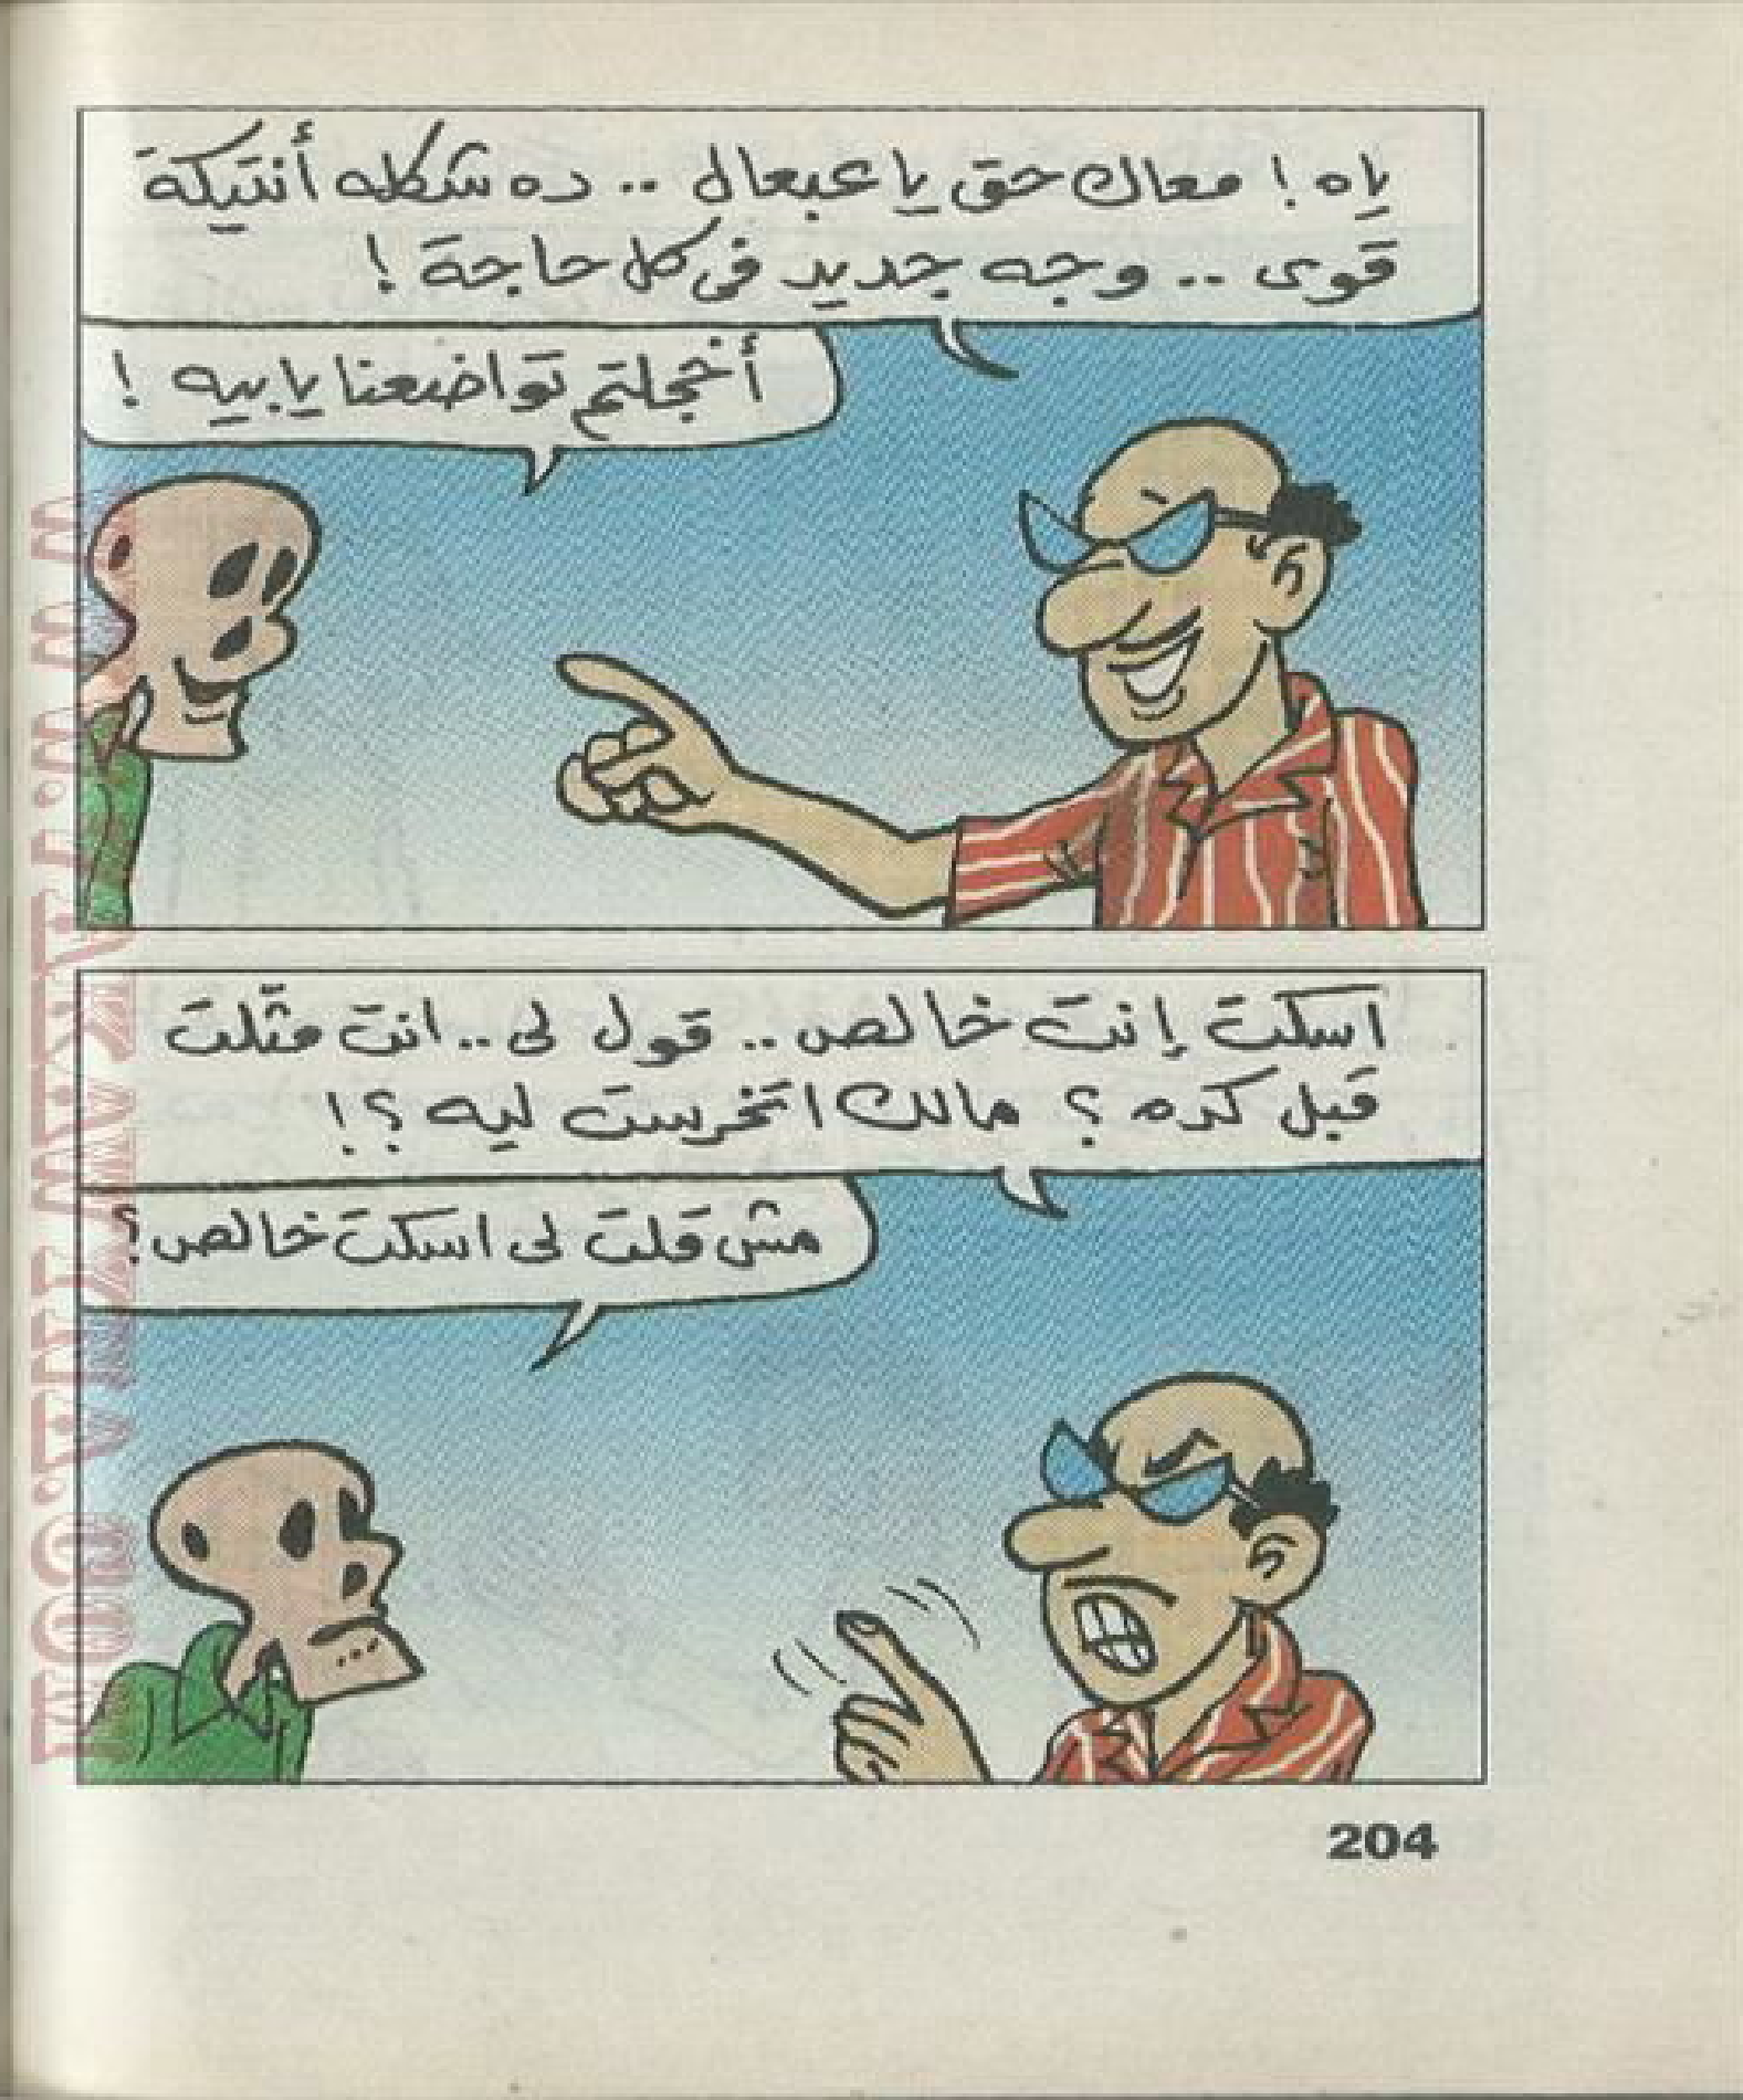 ياه! معاك حق يا عبعال .. ده شكله أنتيكة
قوى .. وجه جديد فى كل حاجة!
أخجلتم تواضعنا يا بيه!
اسكت إنت خالص .. قول لى .. انت مثلت
قبل كده؟ مالك اتخرست ليه؟!
مش قلت لى اسكت خالص؟
204